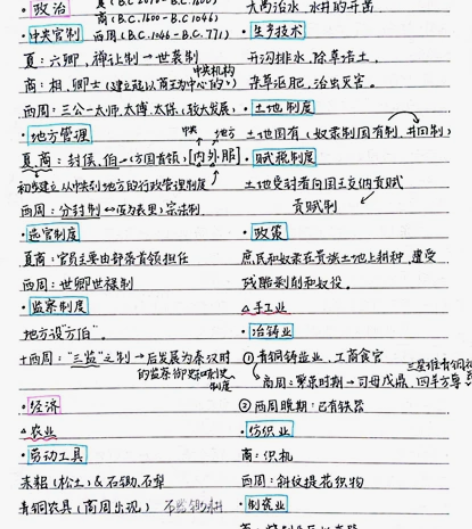 ·政治
夏(B.C.2070-B.C.1600)
商(B.C.1600-B.C.1046)
·中央官制 西周(B.C.1046-B.C.771)
夏:六卿,禅让制→世袭制
中央机构
商:相、卿士(建立起以商王为中心的~)
西周:三公-太师、太傅、太保(较大发展)
·地方管理
中央 地方
夏商:封侯、伯-(方国首领),[内外服]
初步建立从中央到地方的行政管理制度
西周:分封制↔(互为表里)宗法制
·选官制度
夏商:官员主要由部落首领担任
西周:世卿世禄制
·监察制度
地方设"方伯"。
+西周:"三监"之制→后发展为秦汉时的监察御史和刺史制度
·经济
△农业
·劳动工具
耒耜(松土)&石锄、石犁
青铜农具(商周出现)
大禹治水,水井的开凿
·生产技术
开沟排水,除草培土,
杂草沤肥,治虫灾害。
·土地制度
土地国有(奴隶制国有制,井田制)
·赋税制度
土地受封者向国王交纳贡赋
贡赋制
·政策
庶民和奴隶在贵族土地上耕种,遭受
残酷剥削和奴役。
△手工业
·冶铸业
①青铜铸造业,工商食官
商周:繁荣时期→司母戊鼎、四羊方尊
②西周晚期:已有铁器
·纺织业
商:织机
西周:斜纹提花织物
·制瓷业